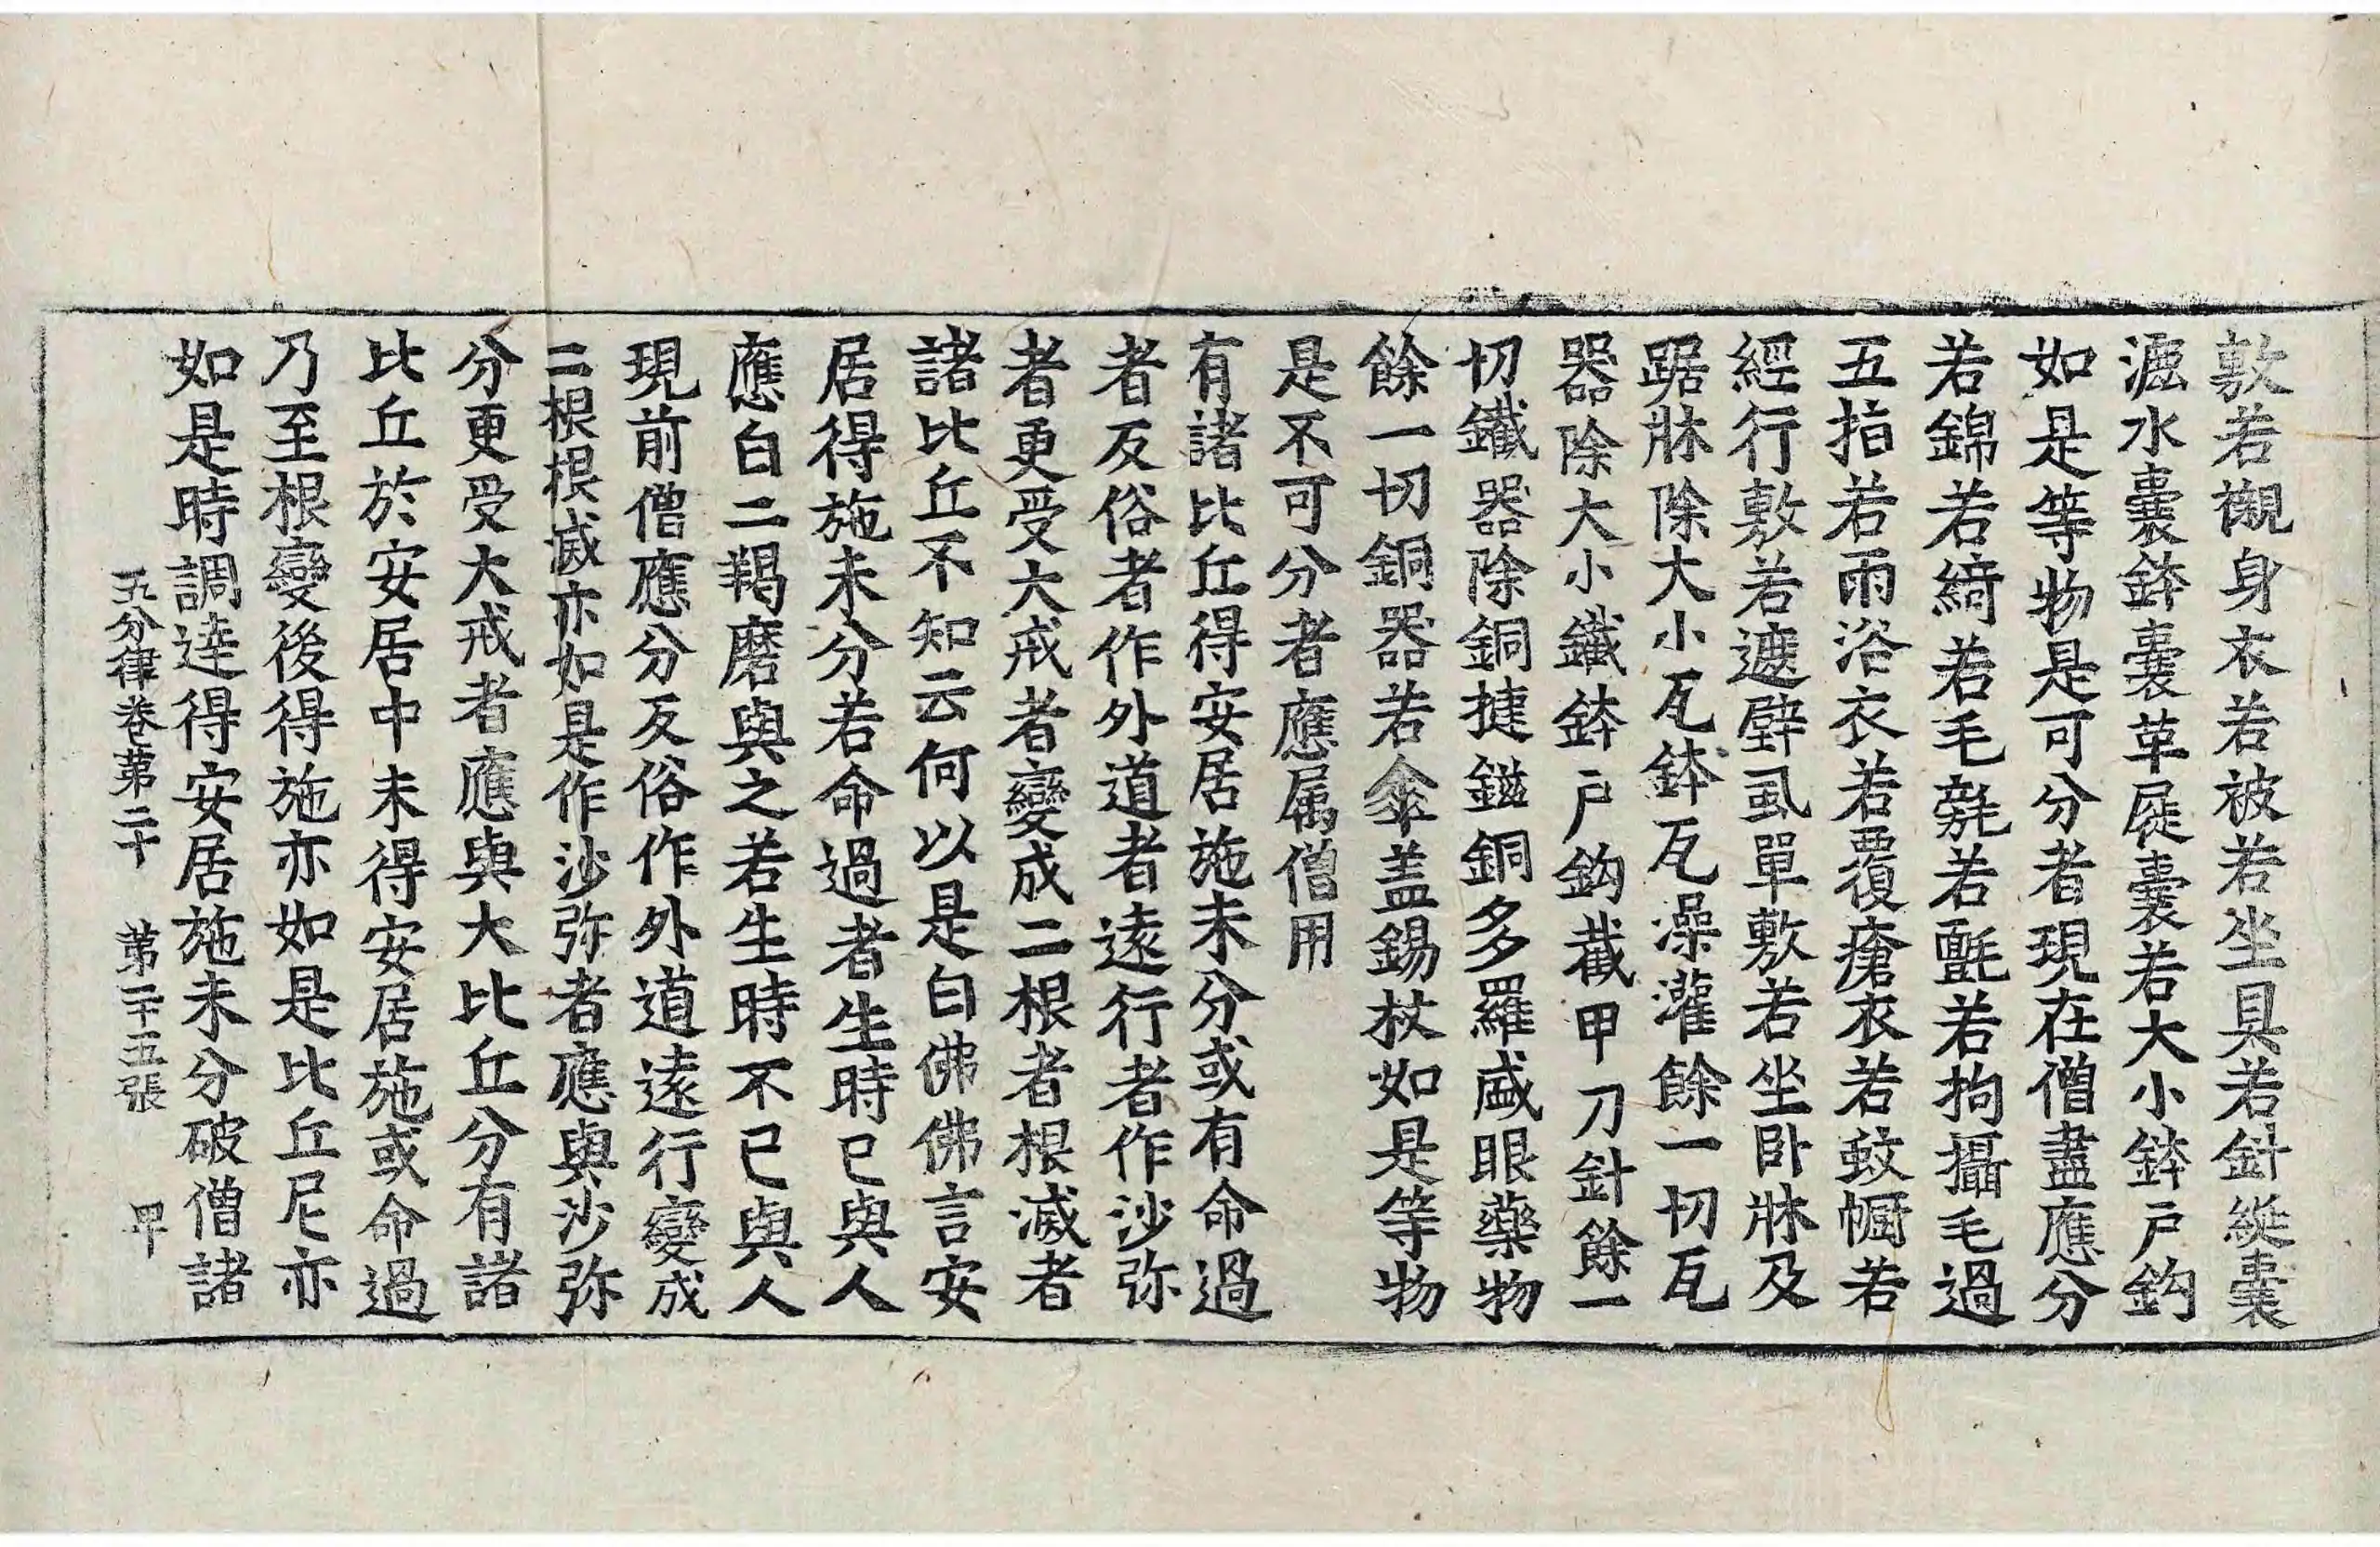 敷若襯身衣若被若坐具若針綖囊
漉水囊鉢囊革屣囊若大小鉢戶鈎
如是等物是可分者現在僧盡應分
若錦若綺若毛㲲若氈若拘攝毛過
五指若雨浴衣若覆瘡衣若蚊㡡若
經行敷若遮壁虱單敷若坐卧牀及
踞牀除大小瓦鉢瓦澡灌餘一切瓦
器除大小鐵鉢戶鈎截甲刀針餘一
切鐵器除銅揵鎡銅多羅盛眼藥物
餘一切銅器若傘盖錫杖如是等物
是不可分者應属僧用
有諸比丘得安居施未分或有命過
者反俗者作外道者遠行者作沙弥
者更受大戒者變成二根者根滅者
諸比丘不知云何以是白佛佛言安
居得施未分若命過者生時已與人
應白二羯磨與之若生時不已與人
現前僧應分反俗作外道遠行變成
二根根滅亦如是作沙弥者應與沙弥
分更受大戒者應與大比丘分有諸
比丘於安居中未得安居施或命過
乃至根變後得施亦如是比丘尼亦
如是時調達得安居施未分破僧諸
五分律卷第二十 第二十五張 甲